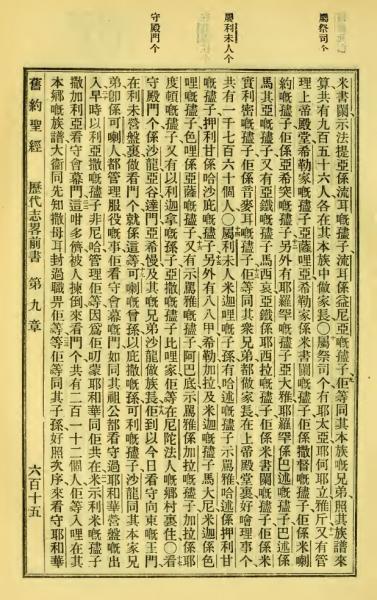 屬祭司个
米書闌示法提亞係流耳嘅孻子流耳係益尼亞嘅孻子佢等同其本族嘅兄弟照其族譜來
算共有九百五十六人各在其本族中做家長〇屬祭司个有耶太亞耶何耶立雅斤又有管
理上帝殿堂希勒家嘅孻子亞薩哩亞希勒家係米書闌嘅孻子佢係撒督嘅孻子佢係米喇
約嘅孻子佢係亞希突嘅孻子另外有耶羅罕嘅孻子亞大雅耶羅罕係巴述嘅孻子巴述係
馬其亞嘅孻子又有亞鐵嘅孻子馬西哀亞鐵係耶西拉嘅孻子佢係米書闌嘅孻子佢係米
實利密嘅孻子佢係音麥耳嘅孻子佢等同其衆兄弟都做家長在上帝殿堂裏好會理事个
屬利未人个
共有一千七百六十個人〇屬利未人米迦哩嘅子孫有哈述嘅孻子示罵雅哈述係押利甘
嘅孻子押利甘係哈沙庇嘅孻子另外有八八甲希勒加拉及米迦嘅孻子馬大尼米迦係色
哩嘅孻子色哩係亞薩嘅孻子又有示罵雅嘅孻子阿巴底示罵雅係加拉嘅孻子加拉係耶
度頓嘅孻子又有以利迦拿嘅孫子亞撒嘅孻子比哩家佢等在尼陀法人嘅鄉村裏住〇看
守殿門个
守殿門个係沙龍亞谷達門亞希慢及其嘅兄弟沙龍做族長佢到以今日看守向東嘅王門
在利未營盤裏做看門个就係這等可喇嘅曾孫以庇撒嘅孫可利嘅孻子沙龍同其本家兄
弟卽係可喇人都管理服役嘅事佢看守會幕嘅門如同其祖公都看守過耶和華營盤嘅出
入早時以利亞撒嘅孻子非尼哈管理佢等因爲佢叨蒙耶和華同佢共在米示利米嘅孻子
撒加利亞看守會幕門這咁多儕被人揀倒來看門个共有二百一十二個人佢等入哩在其
本鄉嘅族譜大衛同先知撒母耳封過職畀佢等佢等同其子孫好照次序來看守耶和華
舊約聖經 歷代志畧前書 第九章 六百十五